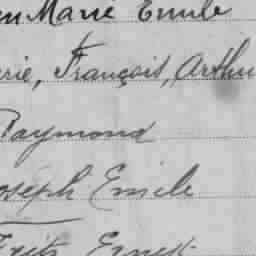 Marie Emile
rie, François, Arthu
Raymond
oseph Emile
Fritz Ernest